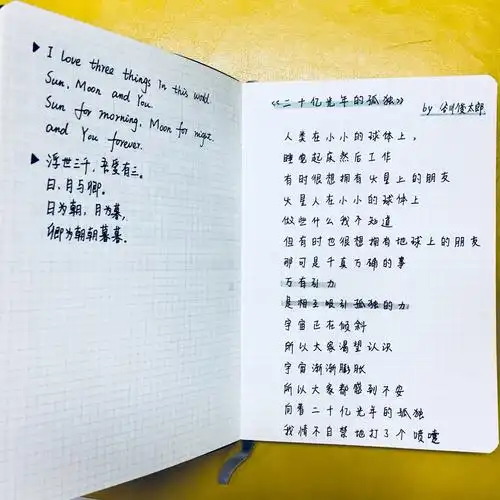 ▶ I love three things in this world.
Sun, Moon and You.
Sun for morning, Moon for night,
and You forever.
▶ 浮世三千，吾爱有三。
日、月与卿。
日为朝，月为暮，
卿为朝朝暮暮。
《二十亿光年的孤独》
by 谷川俊太郎
人类在小小的球体上，
睡觉起床然后工作
有时很想拥有火星上的朋友
火星人在小小的球体上
做些什么我不知道
但有时也很想拥有地球上的朋友
那可是千真万确的事
万有引力
是相互吸引孤独的力
宇宙正在倾斜
所以大家渴望认识
宇宙渐渐膨胀
所以大家都感到不安
向着二十亿光年的孤独
我情不自禁地打了个喷嚏